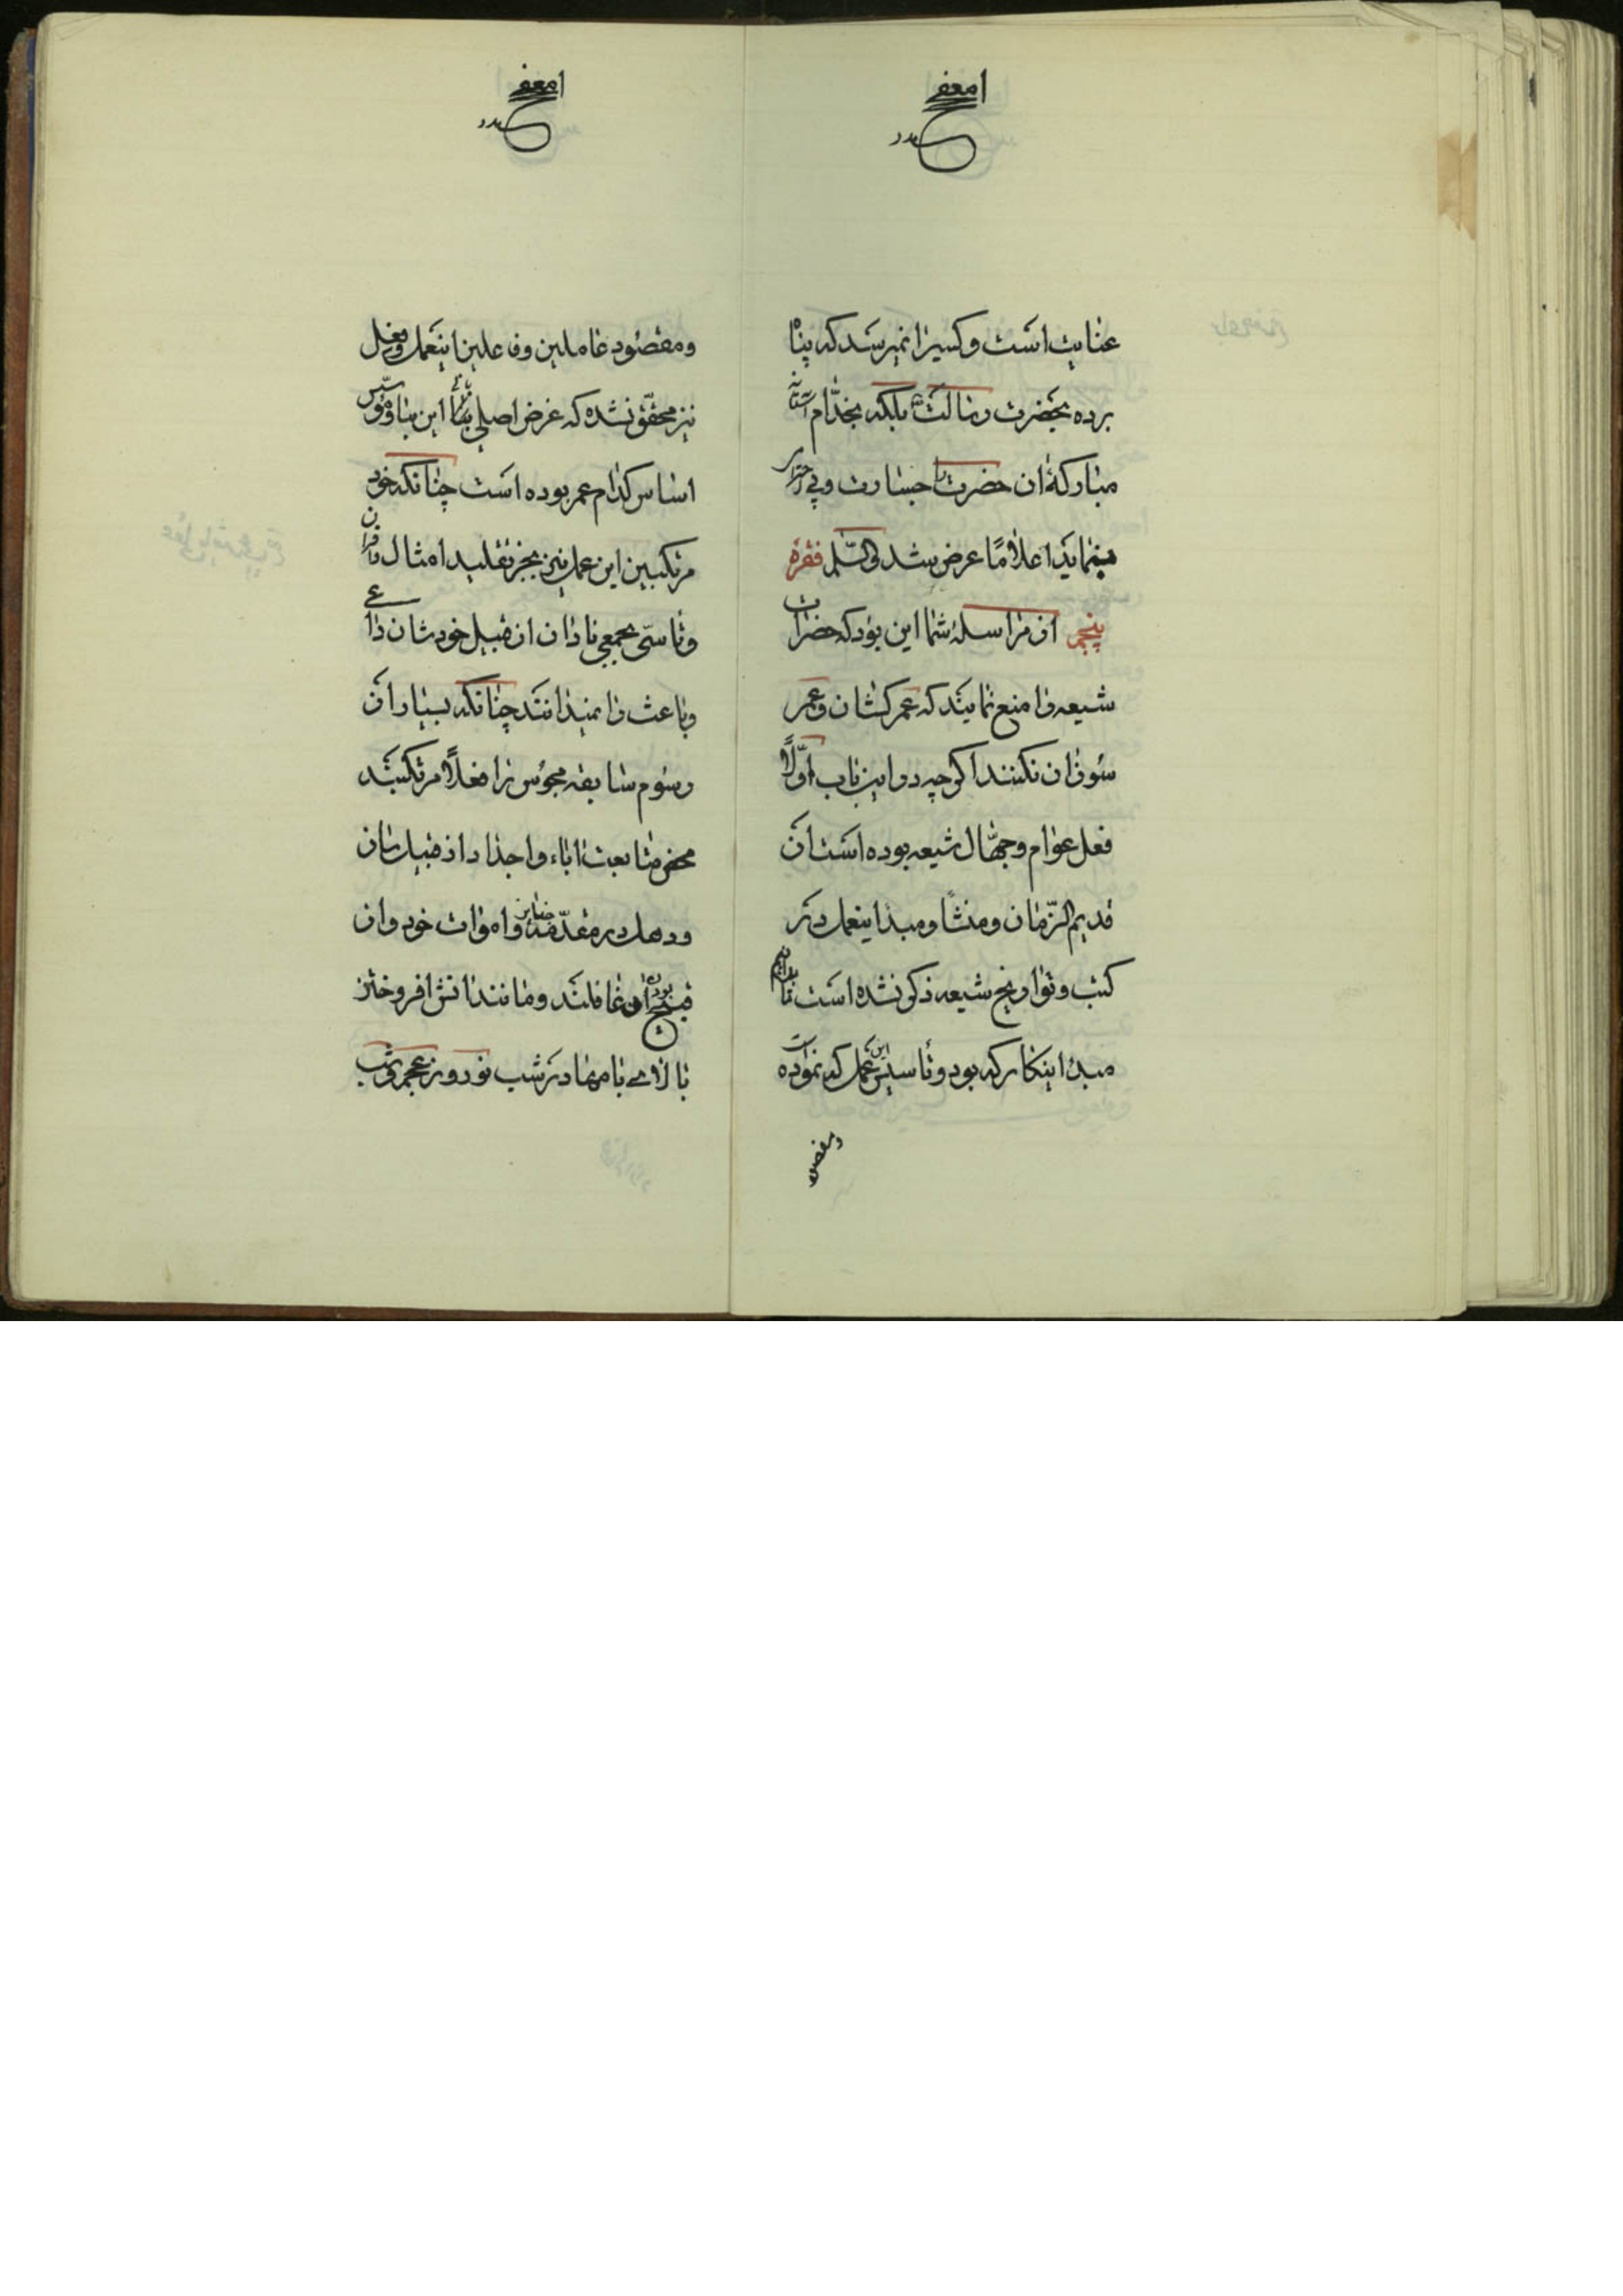 عنایت است و کسیرا نمیرسد که پناه
برده بحضرت رسالت بلکه بخدّام آستانه
مبارکهٔ ان حضرت جسارت و بی احترامی
مینماید اعلاماً عرض شد والسّلم فقرهٔ
پنجم از مراسلهٔ شما این بود که حضرات
شیعه را منع نمایند که عمرکشان و عمر
سوزان نکنند اگرچه در این باب اوّلاً
فعل عوام و جهّال شیعه بوده است از
قدیم الزّمان و منشأ و مبدأ اینعمل در
کتب و تواریخ شیعه ذکر نشده است تا بدانیم
مبدء اینکار که بود و تأسیس این عمل که نموده است
و مقصود
و مقصود عاملین و فاعلین اینعمل و فعل
نیز محقّق نشده که غرض اصلی بنای این بنا و مؤسس
اساس کدام عمر بوده است چنانکه خود
مرتکبین این عمل نیز بجز تقلید امثال و اقران
و تأسّی بجمعی نادان از قبیل خودشان داعی
و باعث را نمیدانند چنانکه بسیار از
رسوم سابقه مجوس را فعلاً مرتکبند
محض متابعت اباء و اجداد از قبیل ساز
و دهل در مقدّمه جنایز و اموات خود و از
قبح بودن ان غافلند و مانند اتش افروختن
بالای بامها در شب نوروز عجم و شب